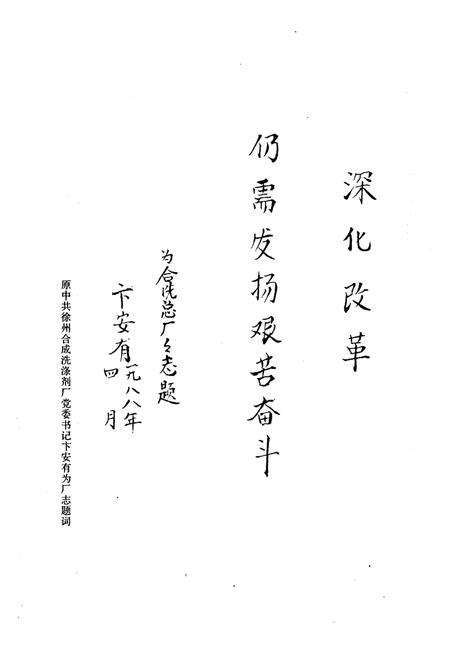 深化改革
仍需发扬艰苦奋斗
为合洗总厂厂志题
卞安有
一九八八年
四月
原中共徐州合成洗涤剂厂党委书记卞安有为厂志题词